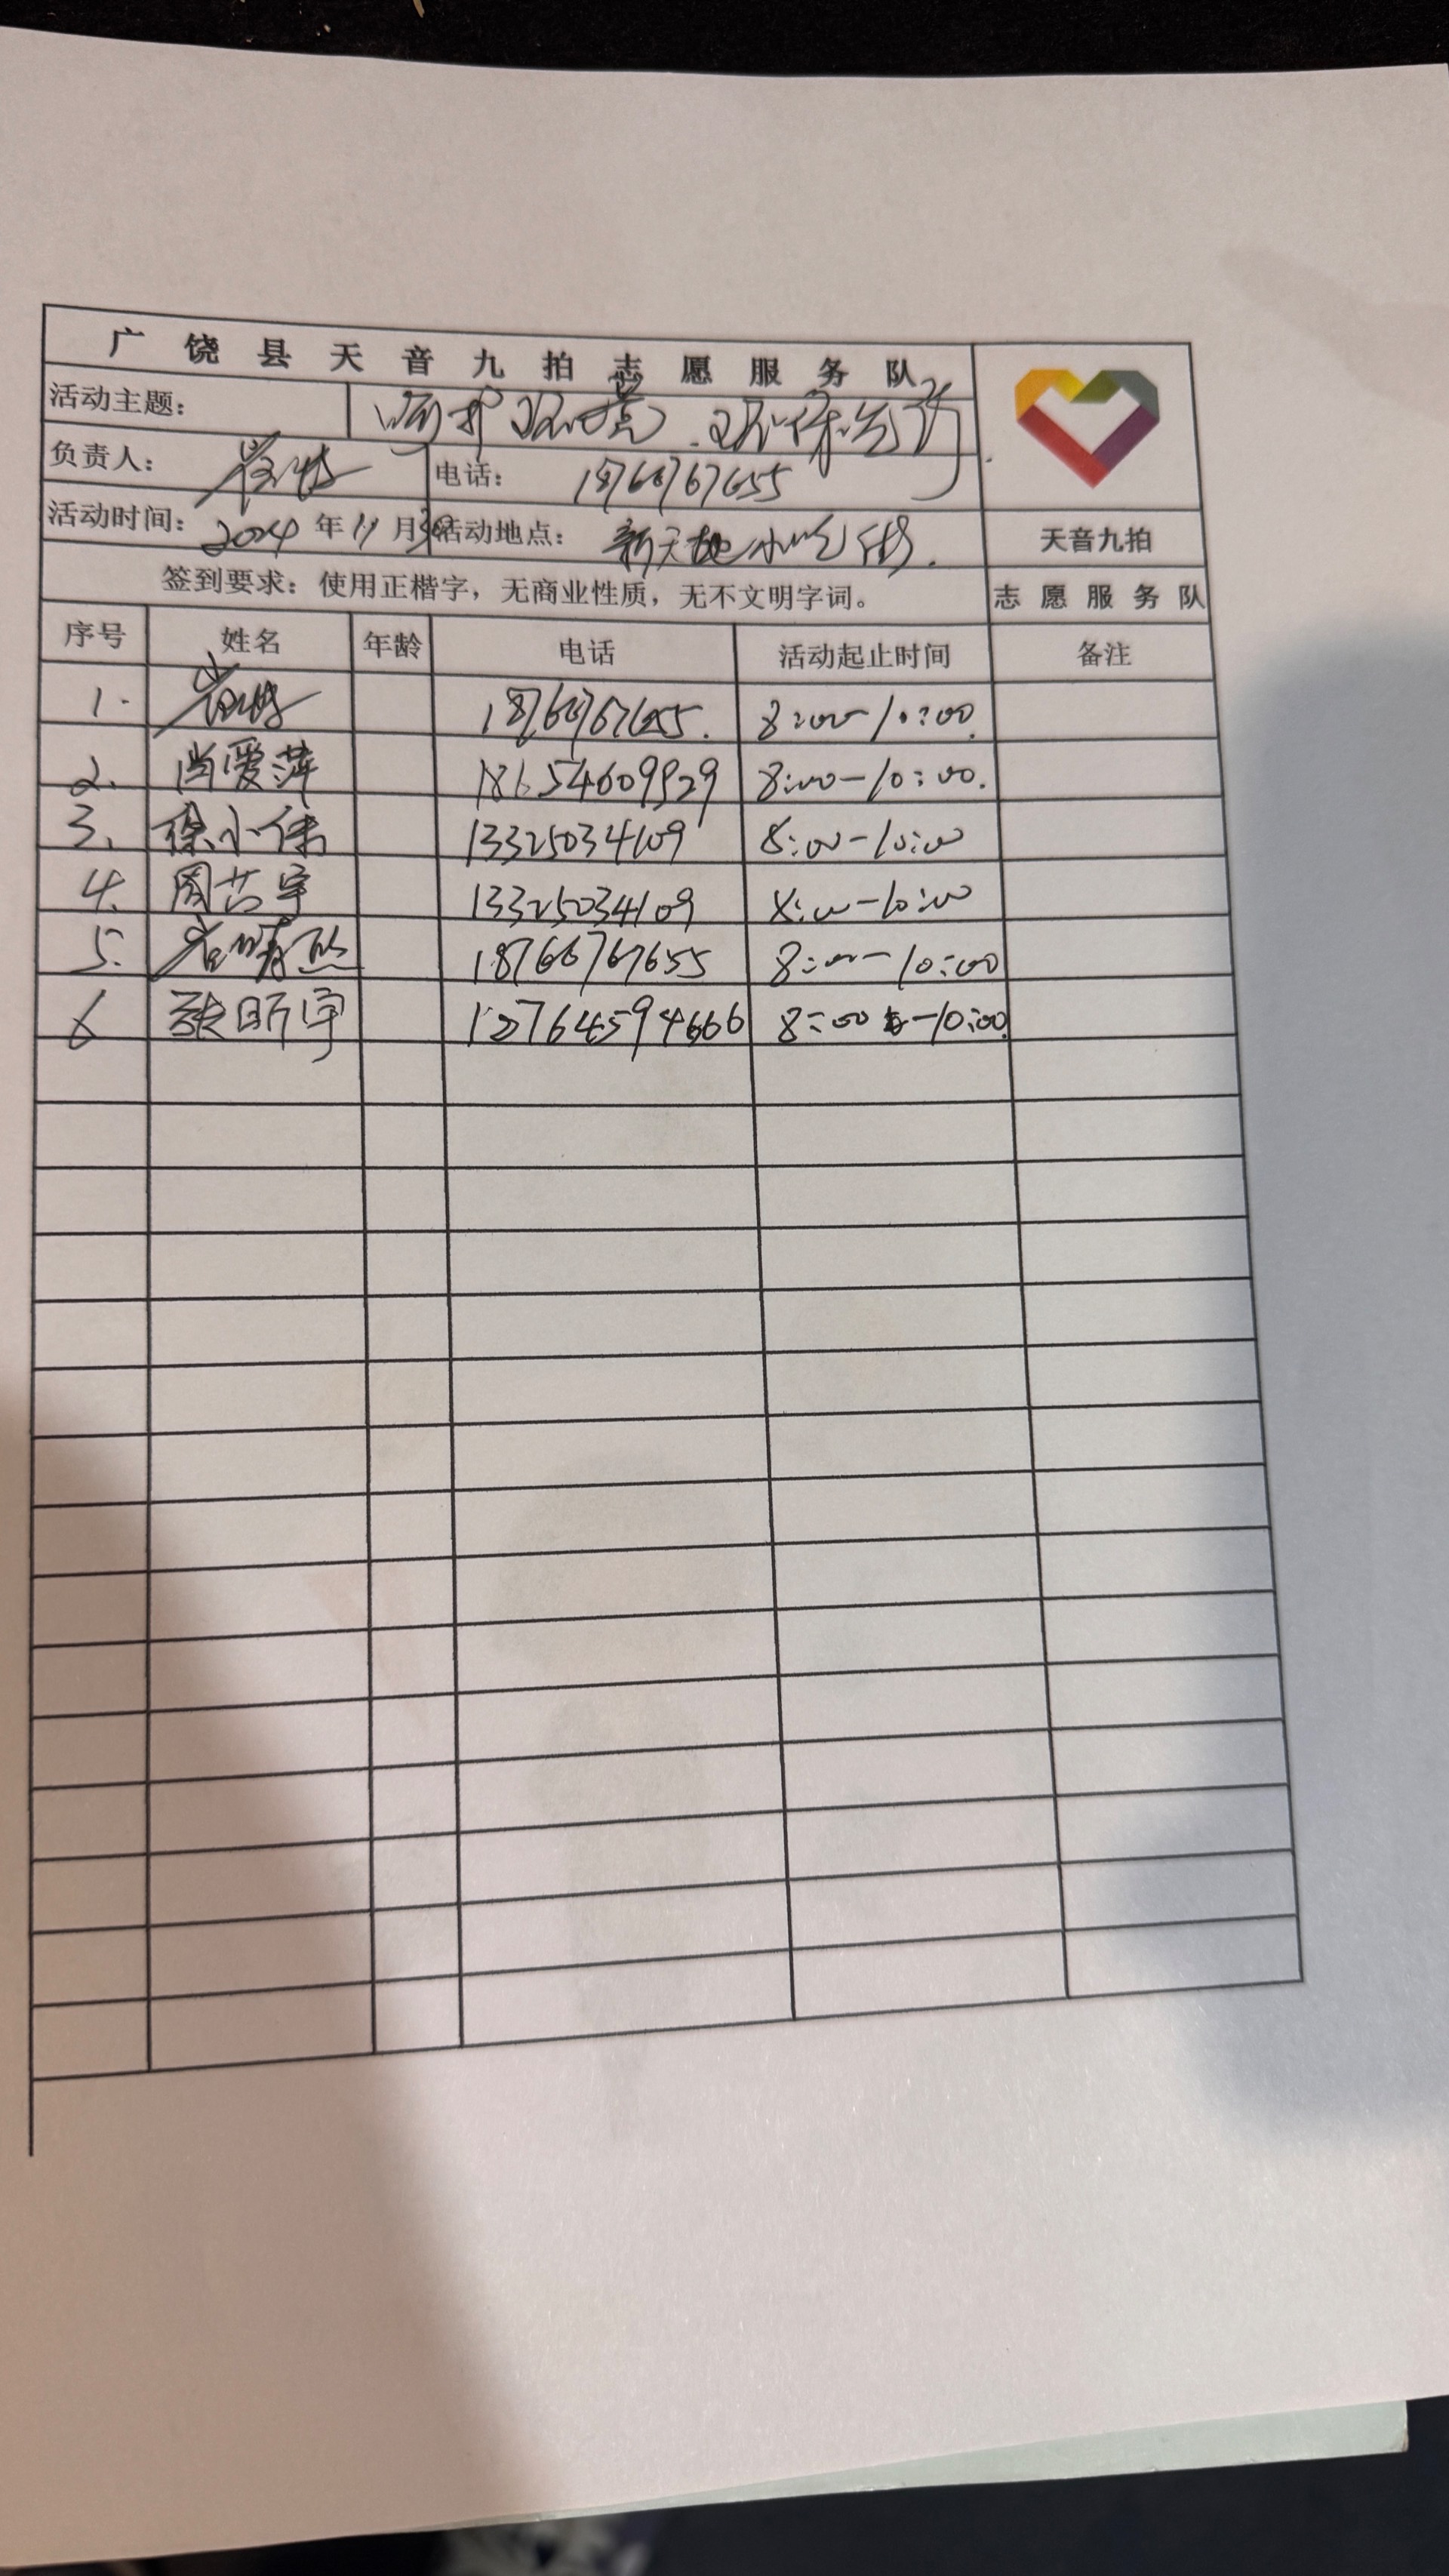 广饶县天音九拍志愿服务队
活动主题： 环境 环保先行.
负责人： 电话： 18766767655
活动时间： 2024年11月30 活动地点： 新天地小吃街.
天音九拍
签到要求：使用正楷字，无商业性质，无不文明字词。
志愿服务队
序号 姓名 年龄 电话 活动起止时间 备注
1. 18766767655. 8:00-10:00.
2. 尚爱萍 18654609929 8:00-10:00.
3. 徐小伟 13325034109 8:00-10:00
4. 周芸宇 13325034109 8:00-10:00
5. 18766767655 8:00-10:00
6 张昕宇 12764594666 8:00-10:00.